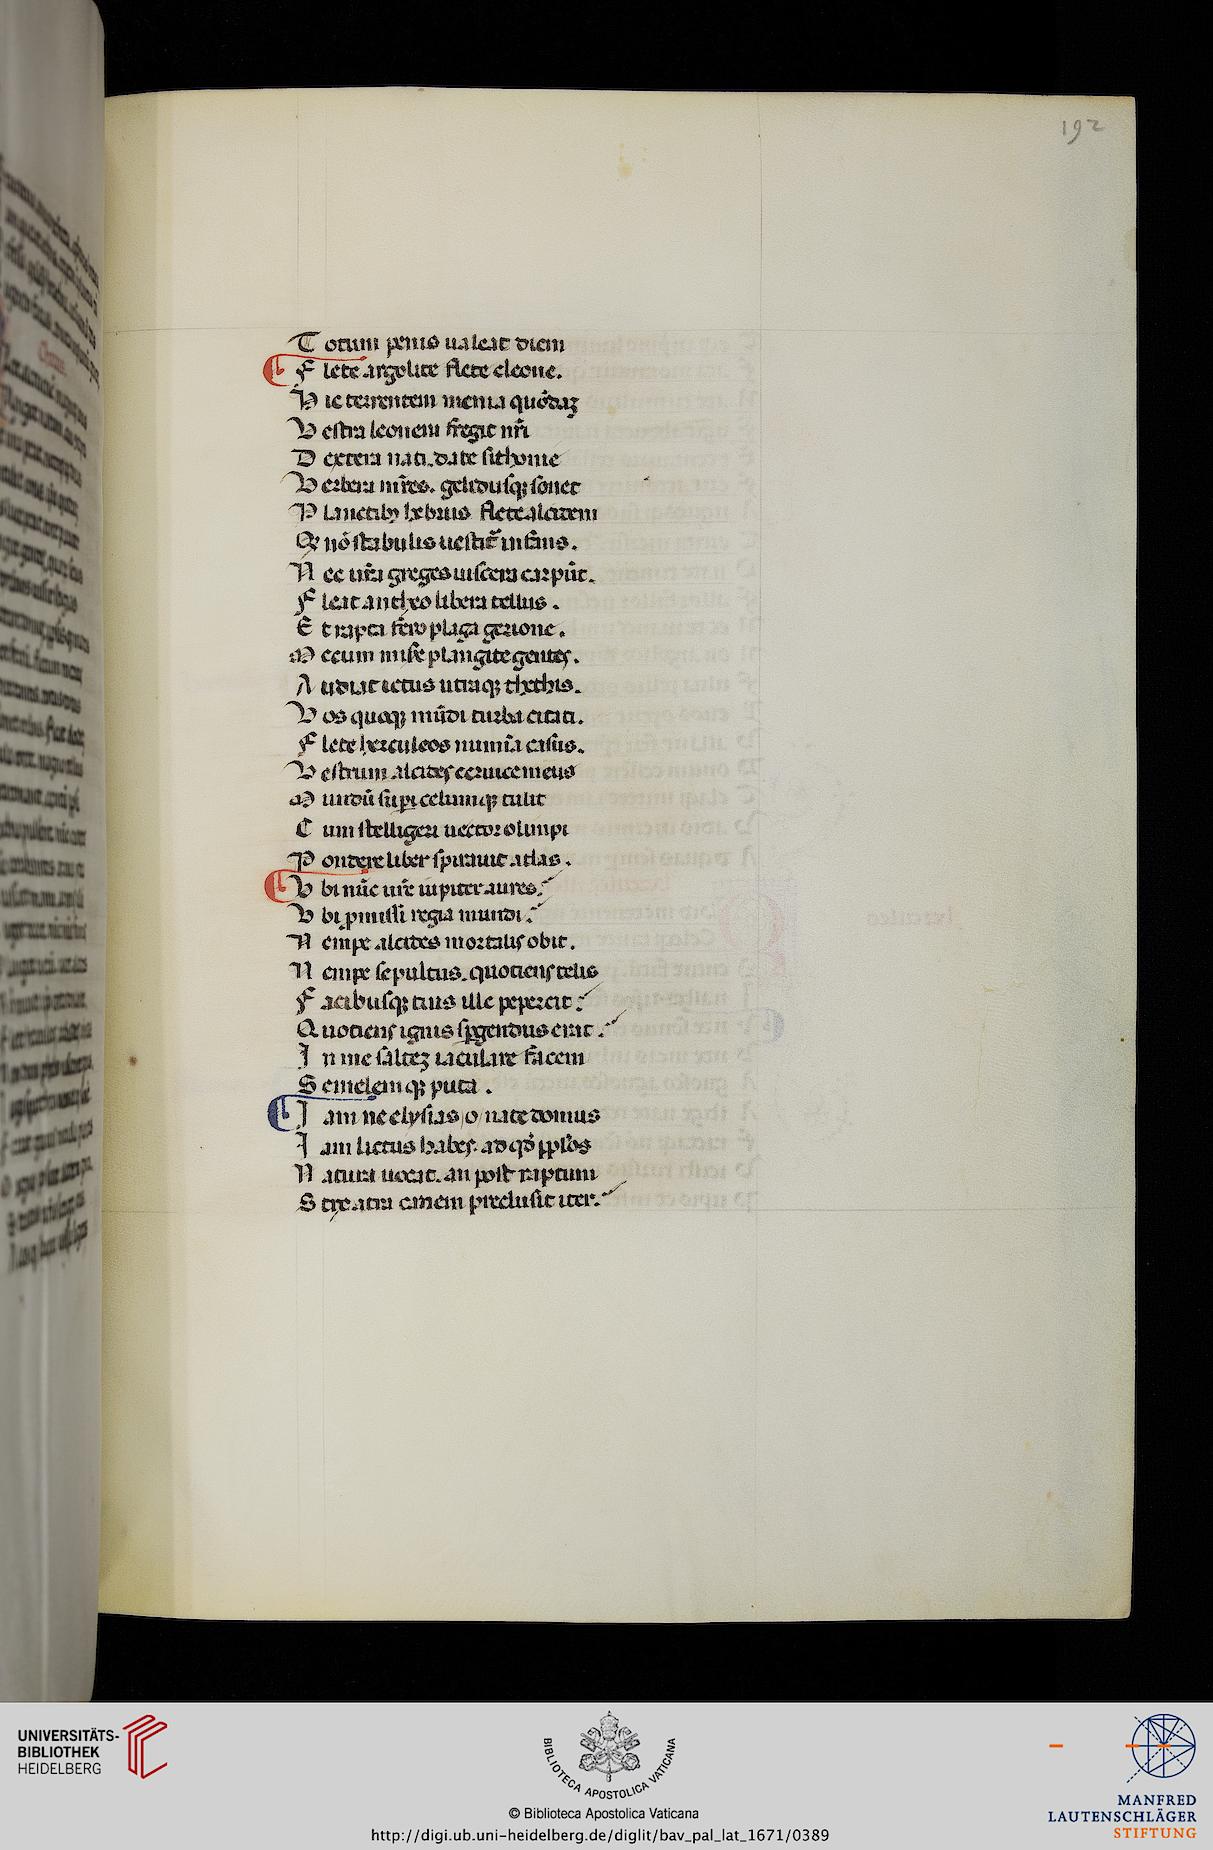 192
Totum penis ualeat diem
Flete argolice flete cleone.
Hic terrentem menia quōdaȝ
Vestra leonem fregit nr̄i
Dextera nati. date sithonie
Verbera mr̄es. gelidusqȝ sonet
Planctibȝ hebrus flete alcidem
Qȝ nō stabulis nascit̄ infans.
Nec ur̄i greges uiscera carpūt.
Fleat antheo libera tellus.
Et rapta fero plaga gerione.
Mecum mise plangite gentes.
Audiat ictus utraqȝ thethis.
Vos quoqȝ mūdi turba citati.
Flete herculeos numīa casus.
Vestrum alcides ceruice meus
Mundū sup̄i celumqȝ tulit
Cum stelligeri uector olimpi
Pondere liber spirauit atlas.
Vbi nūc ur̄e iupiter aures.
Vbi ꝓmissi regia mundi.
Nempe alcides mortalis obit.
Nempe sepultus. quotiens telis
Facibusqȝ tuis ille pepercit
Quotiens ignis spargendus erat.
In me saltez iaculare facem
Semelemqȝ puta.
Iam ne elysias o nate domus
Iam littus habes. ad qd̄ pp̄los
Natura uocat. an post raptum
Stix atra canem preclusit iter.
UNIVERSITÄTS-
BIBLIOTHEK
HEIDELBERG
BIBLIOTECA APOSTOLICA VATICANA
© Biblioteca Apostolica Vaticana
http://digi.ub.uni-heidelberg.de/diglit/bav_pal_lat_1671/0389
MANFRED
LAUTENSCHLÄGER
STIFTUNG